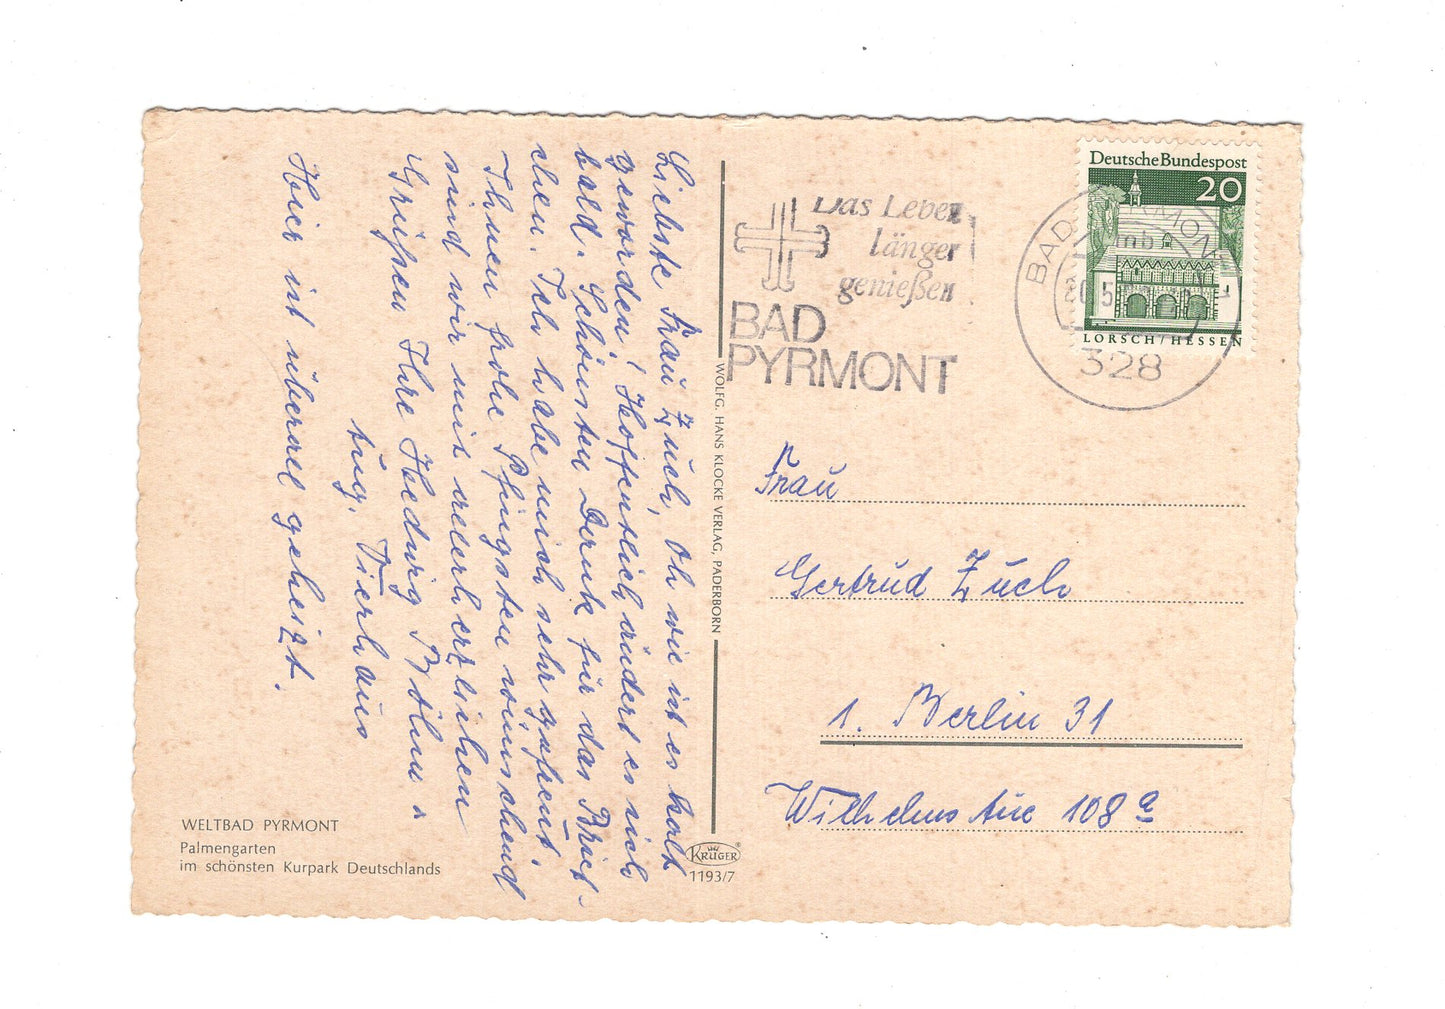 Liebste Frau Zuch, Oh wie ist es kalt
geworden! Hoffentlich ändert es sich
bald. Schönsten Dank für das Brief-
chen. Ich habe mich sehr gefreut.
Ihnen frohe Pfingsten wünschend
sind wir mit recht herzlichen
Grüßen Ihre Hedwig Böhm u
Tierhaus
Hier ist überal geheizt.
WELTBAD PYRMONT
Palmengarten
im schönsten Kurpark Deutschlands
WOLFG. HANS KLOCKE VERLAG, PADERBORN
KRÜGER
1193/7
Das Leben
länger
genießen
BAD
PYRMONT
BAD PYRMONT 1
mb
328
Deutsche Bundespost
20
LORSCH/HESSEN
Frau
Gertrud Zuch
1. Berlin 31
Wilhelmsaue 108a